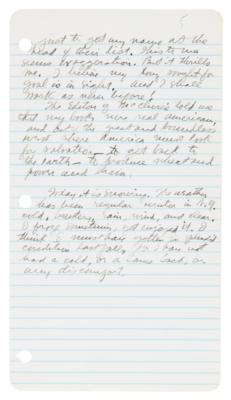 5
just to get my name at the
head of their list. This to me
seems exaggeration. But it thrills
me. I believe my long sought for
goal is in sight, and I shall
work as never before!
The Editor of McClure's told me
that my books were real American,
and that the great and boundless
west where America must look
for salvation — to get back to
the earth — to produce wheat and
power and them.
Today it is snowing. The weather
has been regular winter in N.Y.
cold, rain, wind, and clear.
I froze sometimes, yet enjoyed it. I
think I must have gotten in splendid
condition last fall, for I have not
had a cold, or a lame back, or
any discomfort.